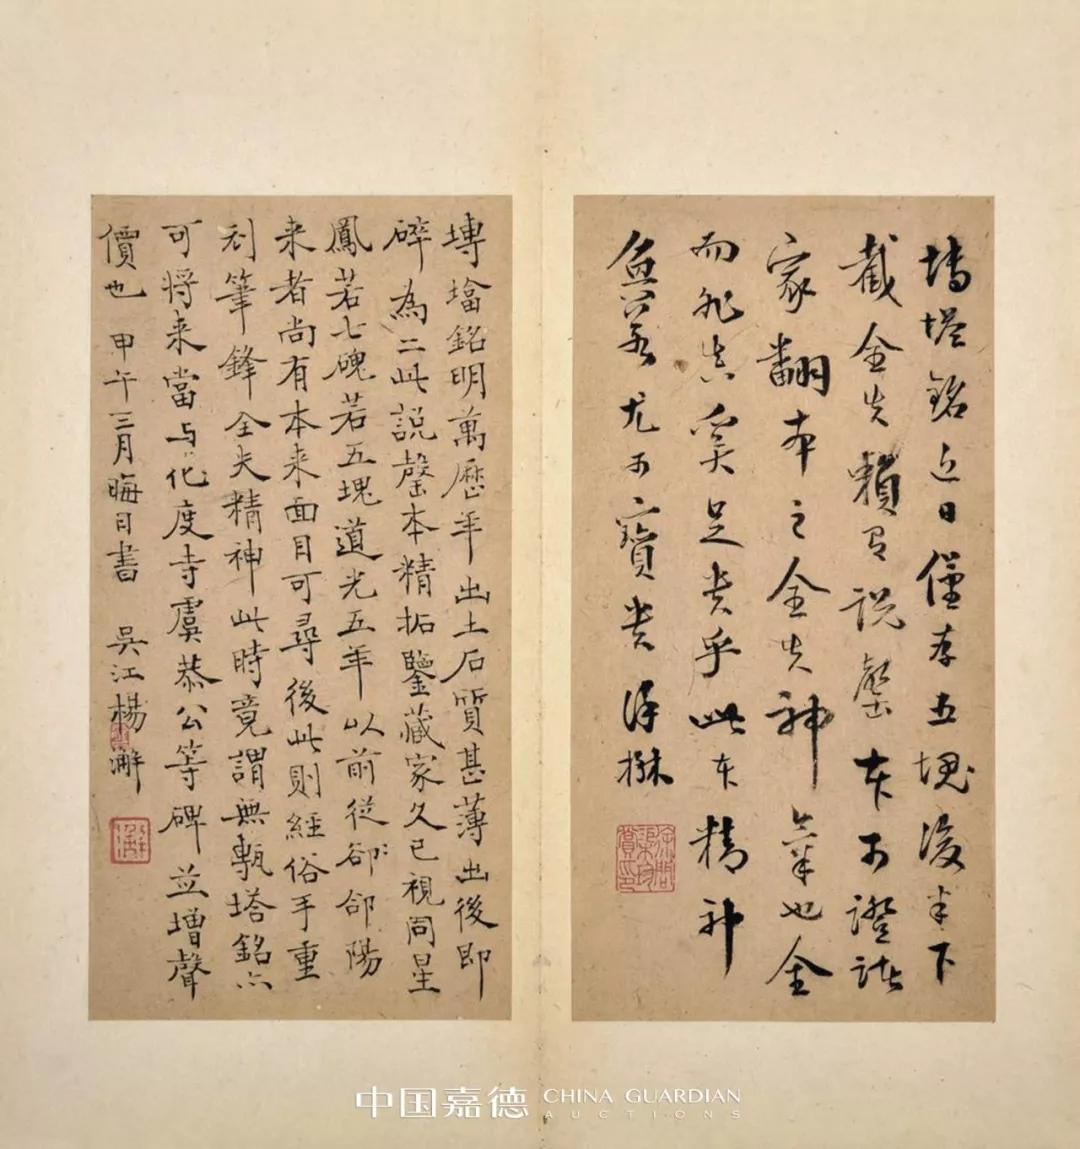 塼塔銘近日僅存五塊後半下
截全失賴有說罄本可證諸
家翻本之全失神氣也全
而非真奚足貴乎此本精神
魚尤可寶貴
塼墖銘明萬歷年出土石質甚薄出後即
碎為二此説罄本精拓鑒藏家久已視同星
鳳若七磈若五塊道光五年以前從郃陽
来者尚有本来面目可尋後此則經俗手重
刻筆鋒全失精神此時竟謂無甎塔銘亦
可将来當与化度寺虞恭公等碑並增聲
價也 甲午三月晦日書 吳江楊澥
中国嘉德 CHINA GUARDIAN
AUCTIONS